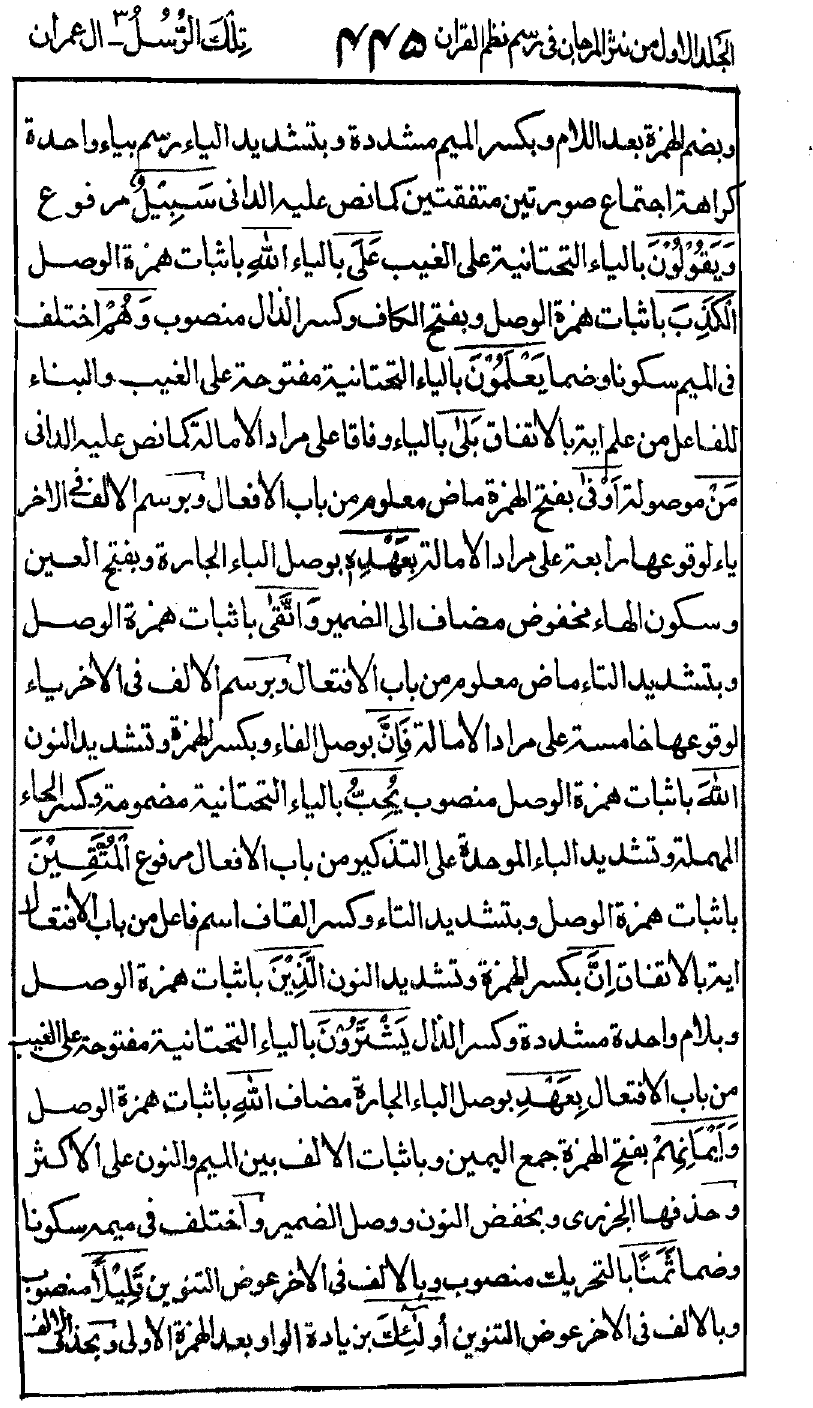 الجلد الاول من نثر المرجان فى رسم نظم القران ۴۴۵ تِلْكَ الرُّسُلُ ٣ ـ ال عمران
وبضم الهمزة بعد اللام وبكسر الميم مشددة وبتشديد الياء رسم بياء واحدة
كراهة اجتماع صورتين متفقتين كما نص عليه الدانى سَبِيْلٌ مرفوع
وَيَقُوْلُوْنَ بالياء التحتانية على الغيب عَلَى بالياء اللهِ باثبات همزة الوصل
الْكَذِبَ باثبات همزة الوصل وبفتح الكاف وكسر الذال منصوب وَهُمْ اختلف
فى الميم سكونا وضما يَعْلَمُوْنَ بالياء التحتانية مفتوحة على الغيب والبناء
للفاعل من علم اية بالاتفاق بَلٰى بالياء وفاقا على مراد الامالة كما نص عليه الدانى
مَنْ موصولة اَوْفٰى بفتح الهمزة ماض معلوم من باب الافعال وبرسم الالف فى الاخر
ياء لوقوعها رابعة على مراد الامالة بِعَهْدِهٖ بوصل الباء الجارة وبفتح العين
وسكون الهاء مخفوض مضاف الى الضمير وَاتَّقٰى باثبات همزة الوصل
وبتشديد التاء ماض معلوم من باب الافتعال وبرسم الالف فى الاخر ياء
لوقوعها خامسة على مراد الامالة فَاِنَّ بوصل الفاء وبكسر الهمزة وتشديد النون
اللهَ باثبات همزة الوصل منصوب يُحِبُّ بالياء التحتانية مضمومة وكسر الحاء
المهملة وتشديد الباء الموحدة على التذكير من باب الافعال مرفوع الْمُتَّقِيْنَ
باثبات همزة الوصل وبتشديد التاء وكسر القاف اسم فاعل من باب الافتعال
اية بالاتفاق اِنَّ بكسر الهمزة وتشديد النون الَّذِيْنَ باثبات همزة الوصل
وبلام واحدة مشددة وكسر الذال يَشْتَرُوْنَ بالياء التحتانية مفتوحة على الغيب
من باب الافتعال بِعَهْدِ بوصل الباء الجارة مضاف اللهِ باثبات همزة الوصل
وَاَيْمَانِهِمْ بفتح الهمزة جمع اليمين وباثبات الالف بين الميم والنون على الاكثر
وحذفها الجزرى وبخفض النون ووصل الضمير واختلف فى ميمه سكونا
وضما ثَمَنًا بالتحريك منصوب وبالالف فى الاخر عوض التنوين قَلِيْلًا منصوب
وبالالف فى الاخر عوض التنوين أولٰٓئِكَ بزيادة الواو بعد الهمزة الاولى وبحذف الالف